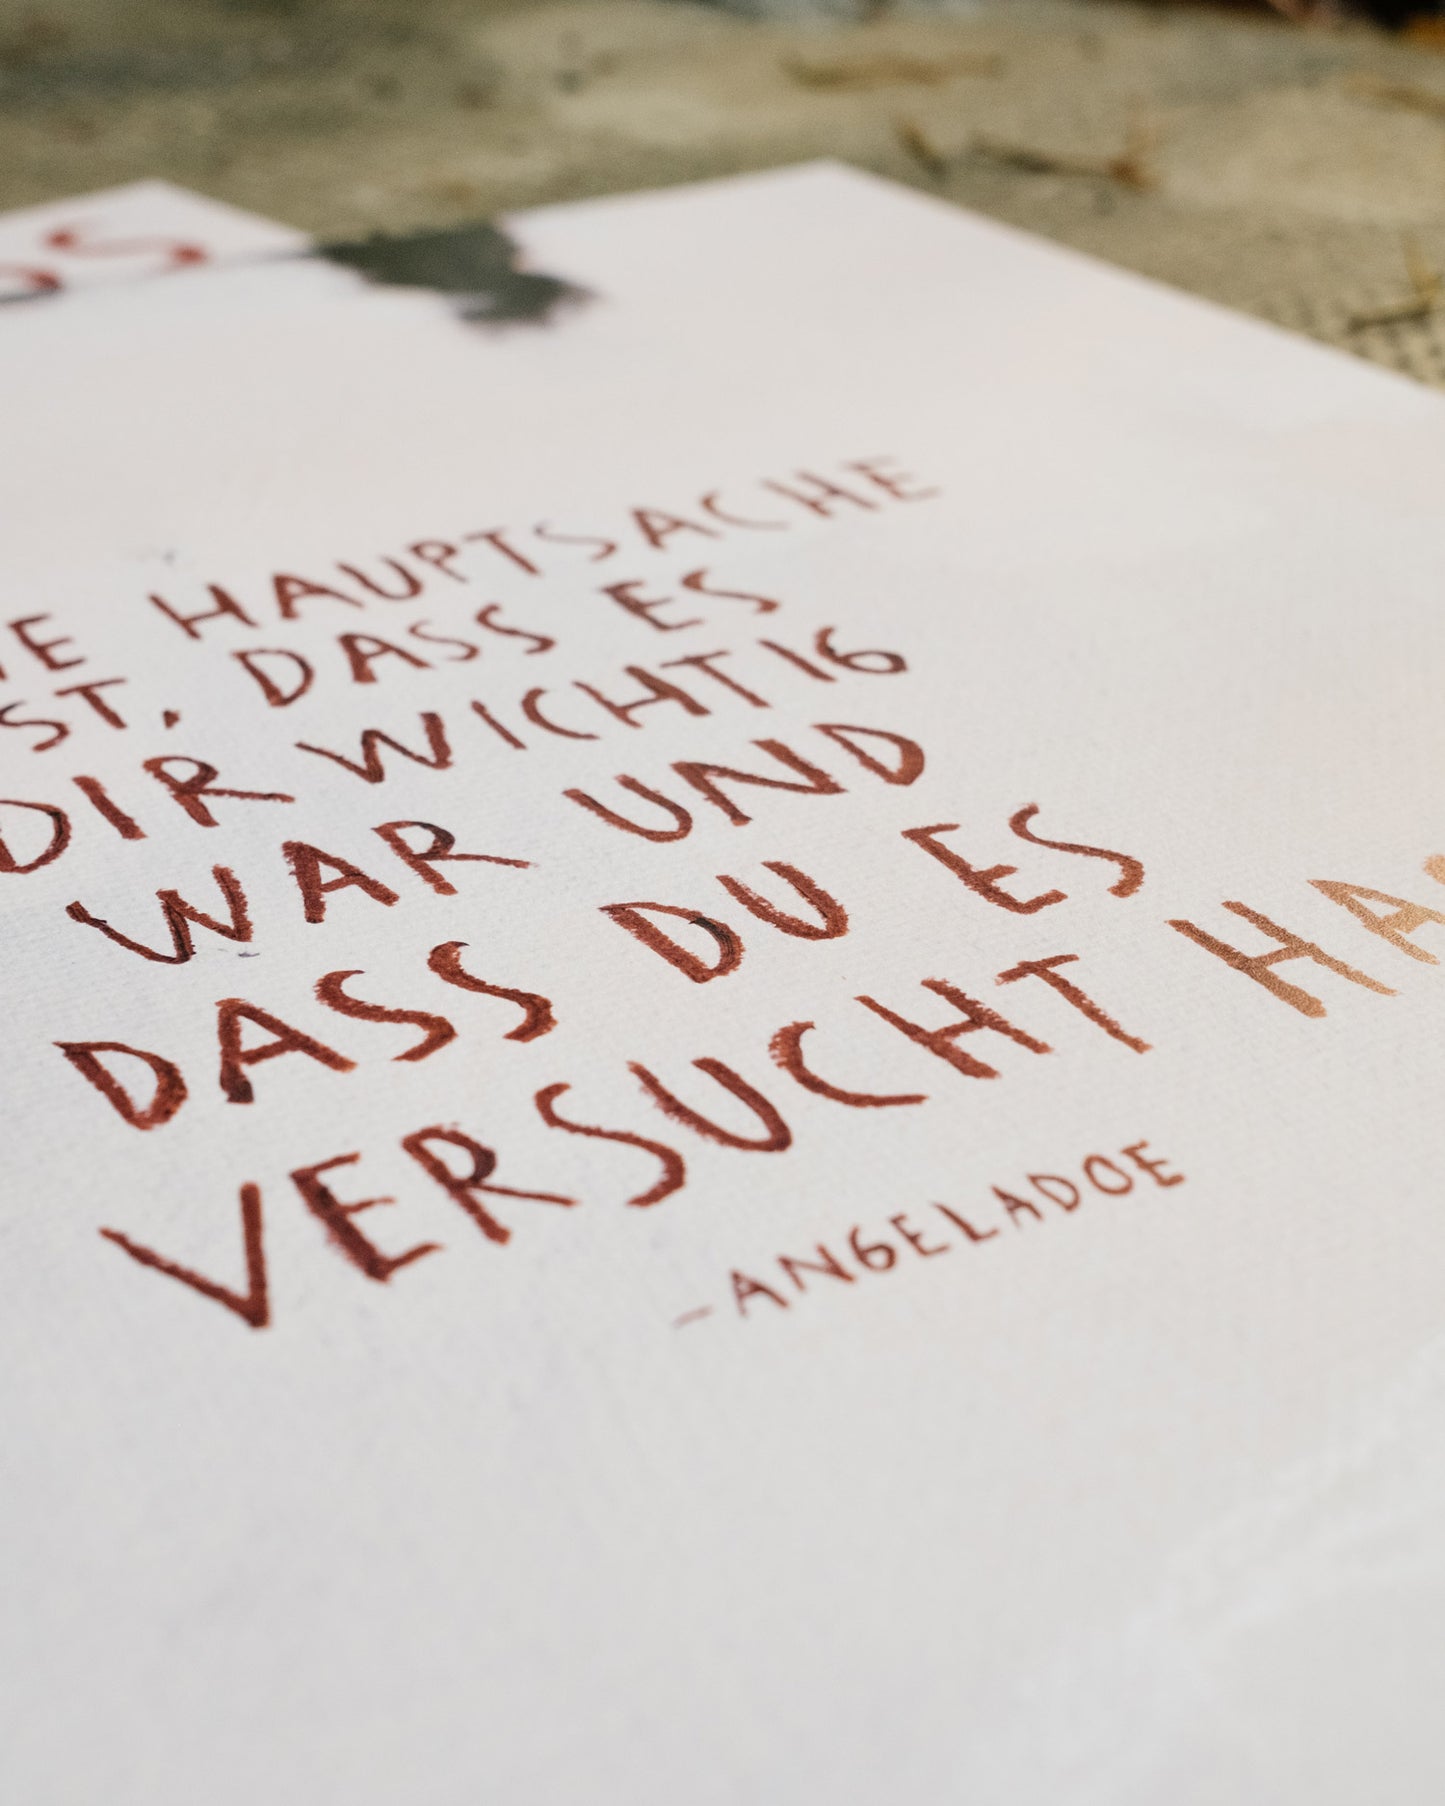 HAUPTSACHE
DASS ES
DIR WICHTIG
WAR UND
DASS DU ES
VERSUCHT
-ANGELADOE